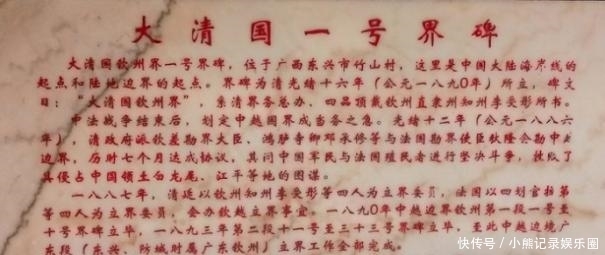 大清国一号界碑
大清国钦州界一号界碑，位于广西东兴市竹山村，这里是中国大陆海岸线的
起点和陆地边界的起点。界碑为清光绪十六年（公元一八九0年）所立，碑文
曰：“大清国钦州界”，系清界务总办、四品顶戴钦州直隶州知州李受彤所书。
中法战争结束后，划定中越国界成当务之急。光绪十二年（公元一八八六
年），清政府派钦差勘界大臣、鸿胪寺卿邓承修等与法国勘界使臣狄隆会勘中越
边界，历时七个月达成协议，其间中国军民与法国殖民者进行坚决斗争，挫败了
其侵占中国领土白龙尾、江平等地的图谋。
一八八七年，清廷以钦州知州李受彤等四人为立界委员，法国以四划官拉第
等四人为立界委员，会办钦越立界事宜，一八九0年中越边界钦州第一段一号至
十号界碑立毕，一八九三年第二段十一号至三十三号界碑立毕，至此中越边境广
东段（东兴、防城时属广东钦州）立界工作全部完成。
快传号 / 小熊记录娱乐圈